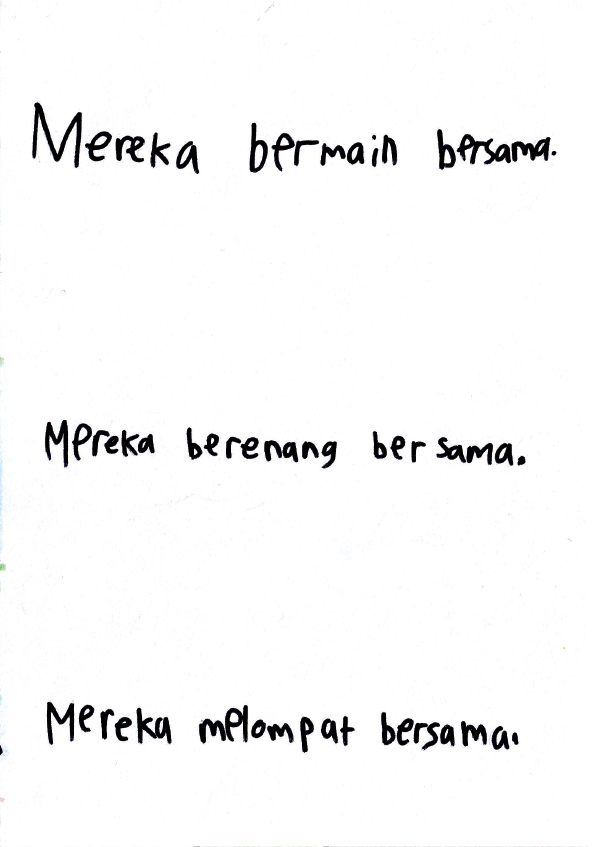 Mereka bermain bersama.
Mereka berenang bersama.
Mereka melompat bersama.